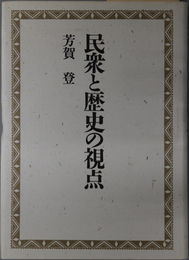 民衆と歴史の視点
芳賀 登